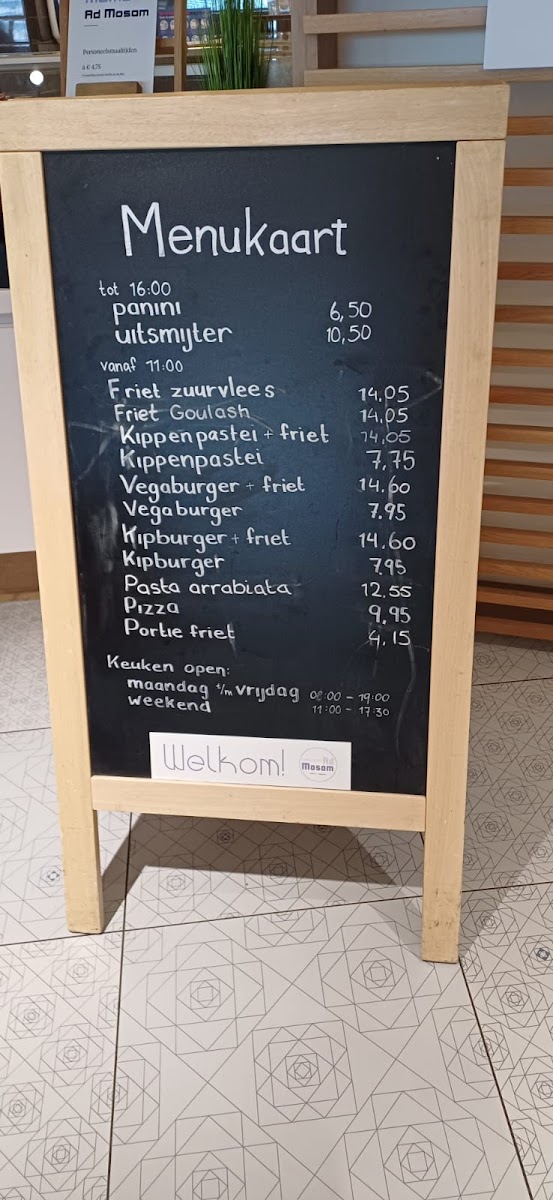 Ad Mosam
Personeelsmaaltijden
à € 4,75
Menukaart
tot 16:00
panini 6,50
uitsmijter 10,50
vanaf 11:00
Friet zuurvlees 14,05
Friet Goulash 14,05
Kippenpastei + friet 14,05
Kippenpastei 7,75
Vegaburger + friet 14,60
Vegaburger 7.95
Kipburger + friet 14.60
Kipburger 7,95
Pasta arrabiata 12,55
Pizza 9,95
Portie friet 4,15
Keuken open:
maandag t/m vrijdag 08:00 - 19:00
weekend 11:00 - 17:30
Welkom! Ad
Mosam